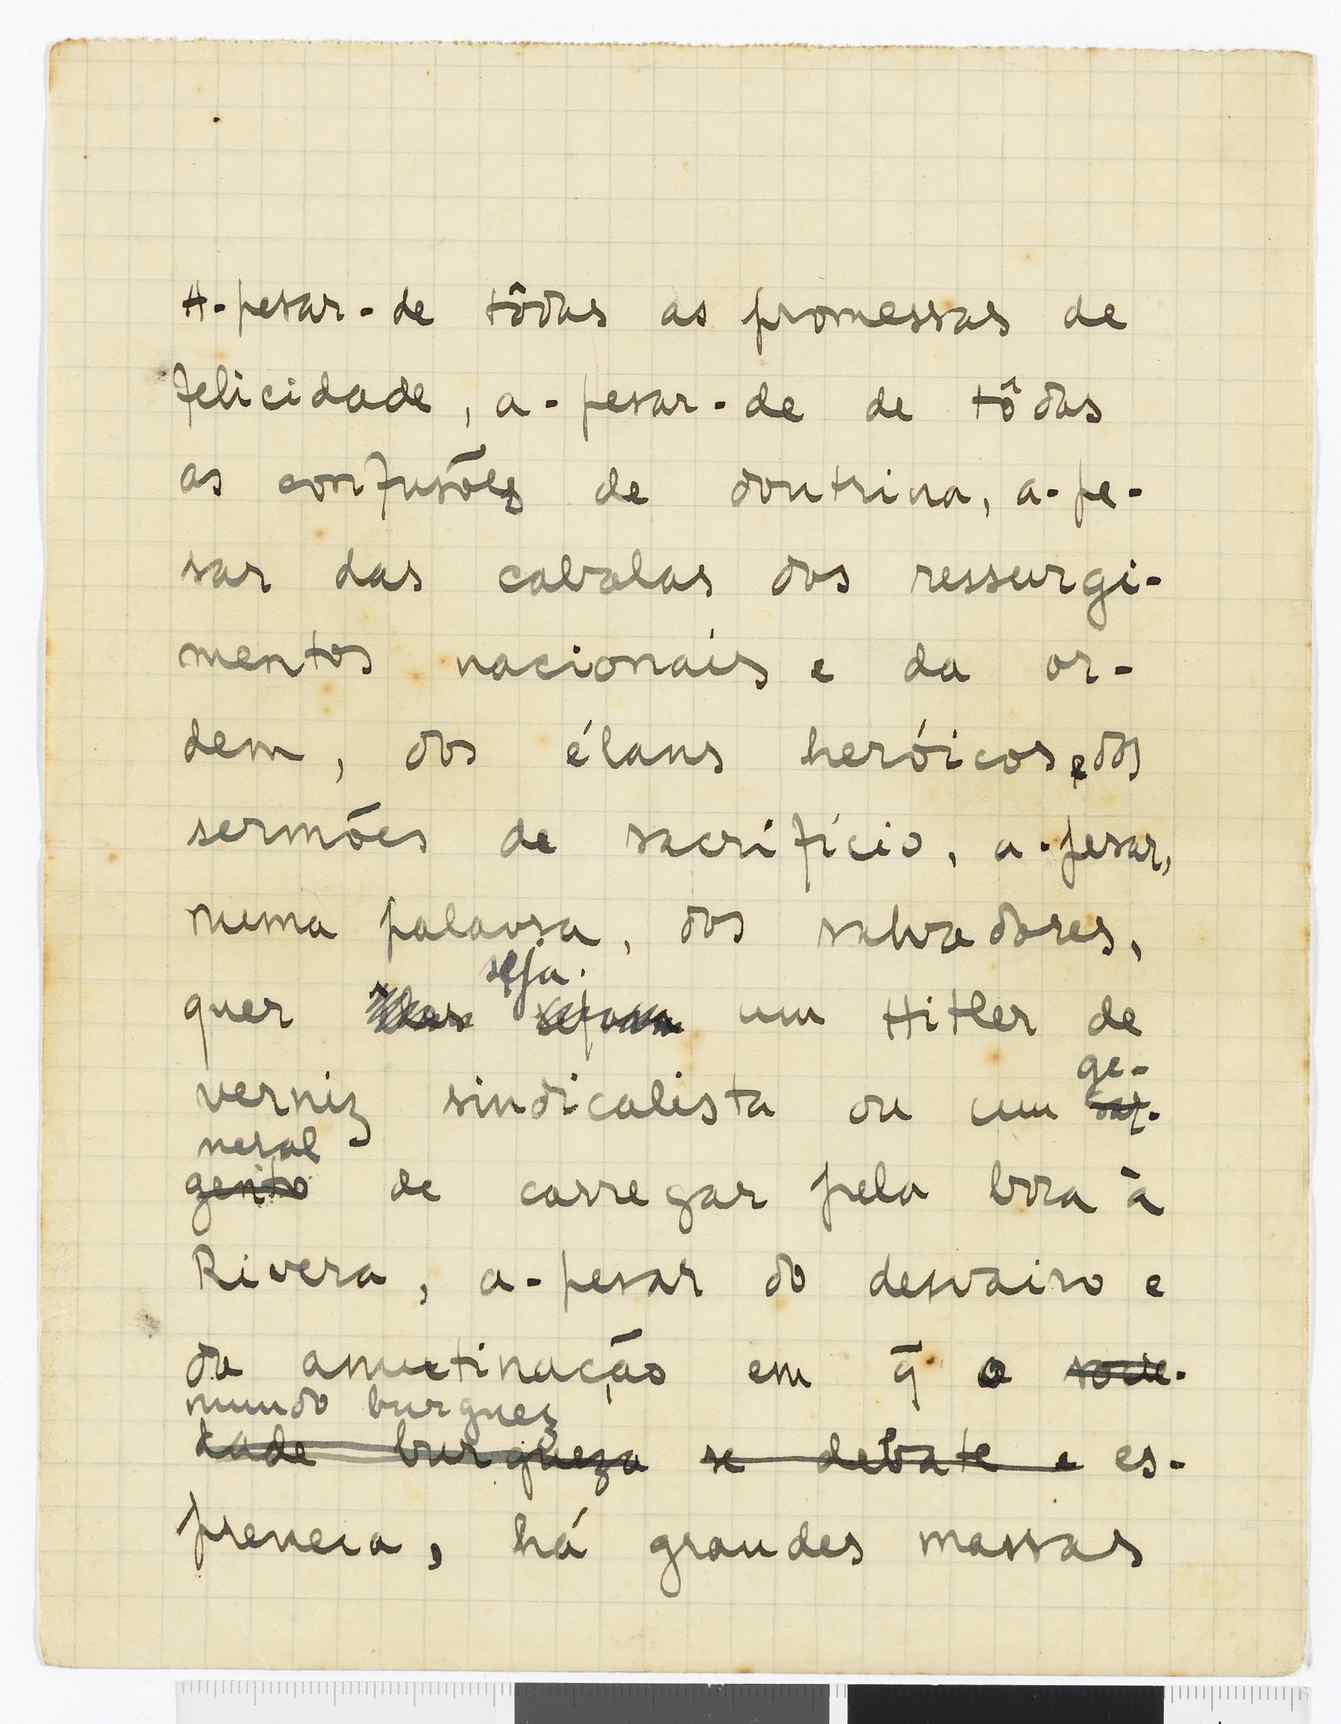 A-pesar-de tôdas as promessas de
felicidade, a-pesar-de de tôdas
as confusões de doutrina, a-pe-
sar das cabalas dos ressurgi-
mentos nacionais e da or-
dem, dos élans heróicos e dos
sermões de sacrifício, a-pesar,
numa palavra, dos salvadores,
seja
quer um Hitler de
ge-
verniz sindicalista ou um sar-
neral
gento de carregar pela boca à
Rivera, a-pesar do desvairo e
da amutinação em q̃ o socie-
mundo burguez
dade burgueza se debate e es-
preneia, há grandes massas